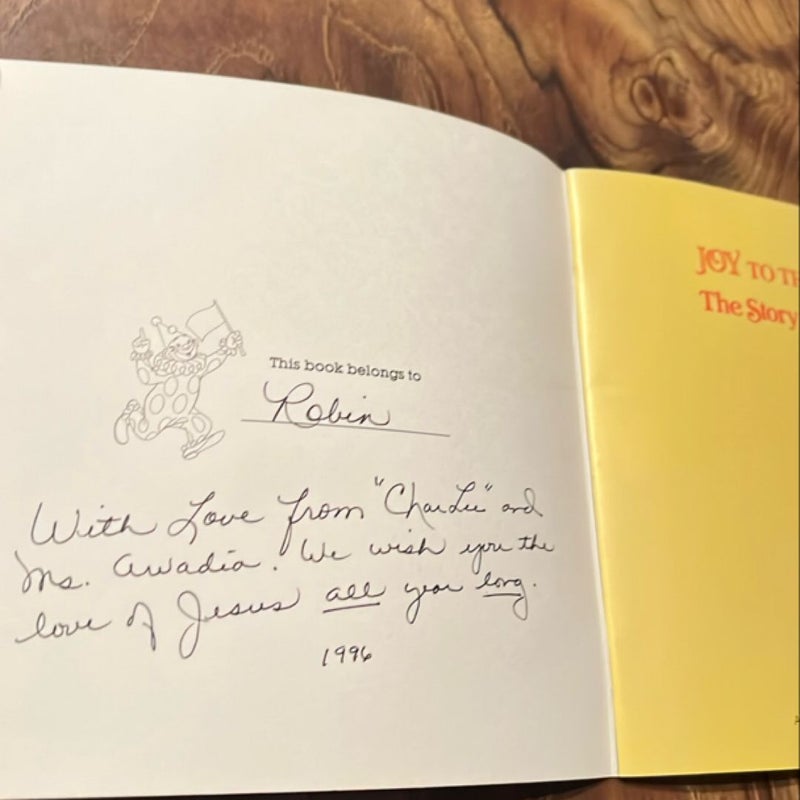 This book belongs to
Robin
With Love from "CharLie" and
Ms. Awadia. We wish you the
love of Jesus all year long.
1996
JOY TO TH
The Story